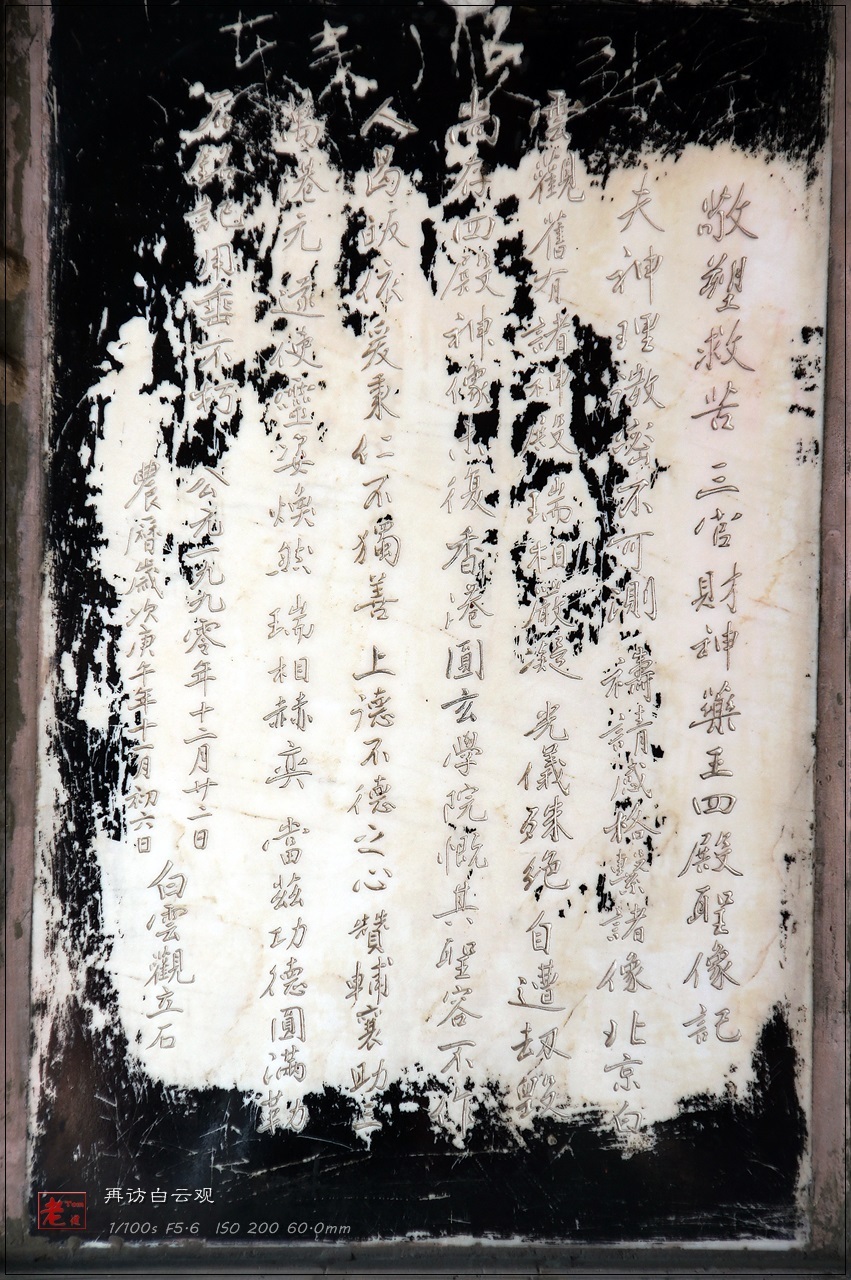 敬塑救苦三官財神藥王四殿聖像記
夫神理微密不可測禱請感格繫諸像北京白
雲觀舊有諸神殿瑞相嚴凝光儀殊絕自遭劫毀
尚存四殿神像未復香港圓玄學院慨其聖容不作
人曷皈依爰秉仁不獨善上德不德之心贊輔襄助三
萬港元遂使靈姿煥然瑞相赫奕當茲功德圓滿勒
石銘記用垂不朽
公元一九九零年十二月廿二日
農曆歲次庚午年十一月初六日
白雲觀立石
再访白云观
1/100s F5.6 ISO 200 60.0mm